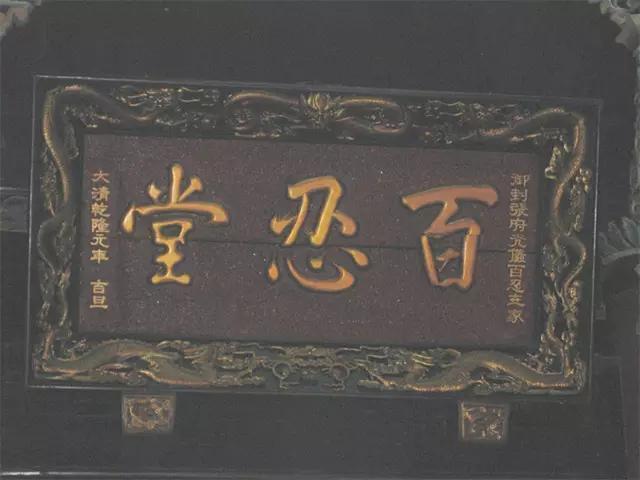 御封張府完儀百忍主家
百忍堂
大清乾隆元年 吉旦